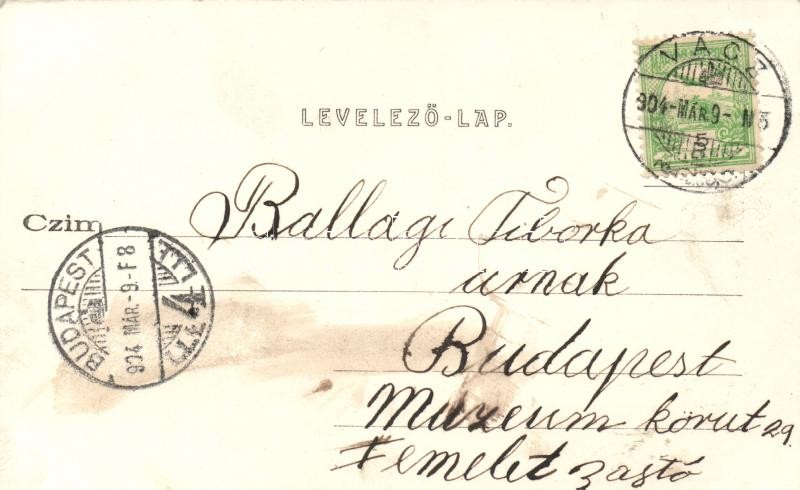 VÁCZ
904-MÁR.9- N5
5
LEVELEZŐ-LAP.
Czim
Ballagi Tiborka
urnak
BUDAPEST
904 MÁR.-9.-F8
Budapest
Muzeum körut 29.
I emelet